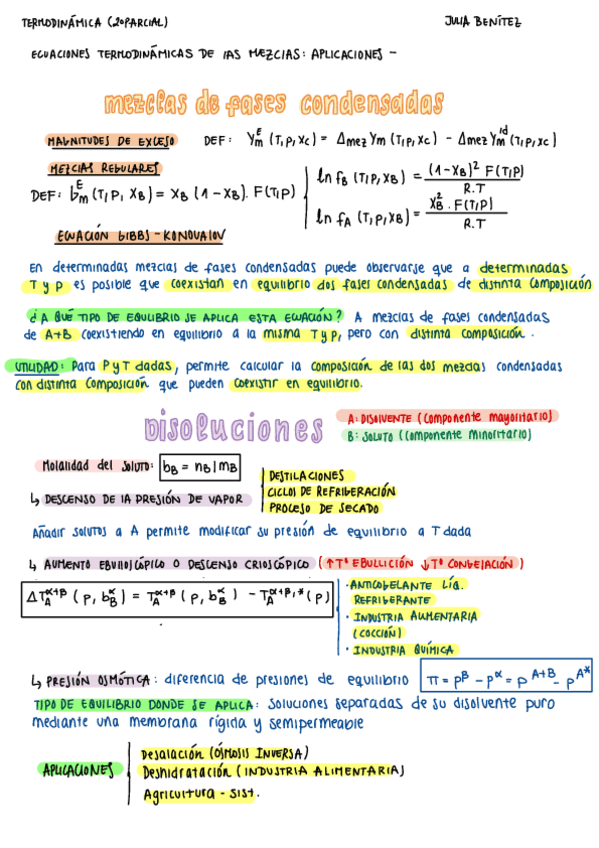 TERMODINÁMICA (2ºPARCIAL)
JULIA BENÍTEZ
ECUACIONES TERMODINÁMICAS DE lAS MEZCLAS: APLICACIONES -
mezclas de fases condensadas
MAGNITUDES DE EXCESO DEF: Yₘᴱ (T,P,xc) = Δmez Ym (T,P,xc) - Δmez Yₘⁱᵈ (T,P,xc)
MEZCLAS REGULARES
DEF: bₘᴱ (T,P, XB) = XB (1-XB). F(T,P)
ln fB (T,P,XB) = (1-XB)² F(T,P) / R.T
ln fA (T,P,XB) = XB² . F(T,P) / R.T
ECUACIÓN GIBBS-KONOVALOV
En determinadas mezclas de fases condensadas puede observarse que a determinadas
T y p es posible que coexistan en equilibrio dos fases condensadas de distinta composición
¿A QUÉ TIPO DE EQUILIBRIO SE APLICA ESTA ECUACIÓN? A mezclas de fases condensadas
de A+B coexistiendo en equilibrio a la misma T y p, pero con distinta composición.
UTILIDAD: Para P y T dadas, permite calcular la composición de las dos mezclas condensadas
con distinta composición que pueden coexistir en equilibrio.
Disoluciones
A: DISOLVENTE (Componente mayoritario)
B: SOLUTO (Componente minoritario)
Molalidad del soluto: bB = nB/mB
↳ DESCENSO DE LA PRESIÓN DE VAPOR
DESTILACIONES
CICLOS DE REFRIGERACIÓN
PROCESO DE SECADO
Añadir solutos a A permite modificar su presión de equilibrio a T dada
↳ AUMENTO EBULLOSCÓPICO O DESCENSO CRIOSCÓPICO (↑Tº EBULLICIÓN ↓Tº CONGELACIÓN)
ΔT_A^α+β (p, b_B^α) = T_A^α+β (p, b_B^α) - T_A^α+β,* (p)
· ANTICOGELANTE LÍQ.
REFRIGERANTE
· INDUSTRIA ALIMENTARIA
(COCCIÓN)
· INDUSTRIA QUÍMICA
↳ PRESIÓN OSMÓTICA: diferencia de presiones de equilibrio π = p^β - p^α = p^A+B - p^A*
TIPO DE EQUILIBRIO DONDE SE APLICA: soluciones separadas de su disolvente puro
mediante una membrana rígida y semipermeable
APLICACIONES
Desalación (ÓSMOSIS INVERSA)
Deshidratación (INDUSTRIA ALIMENTARIA)
Agricultura - sist.